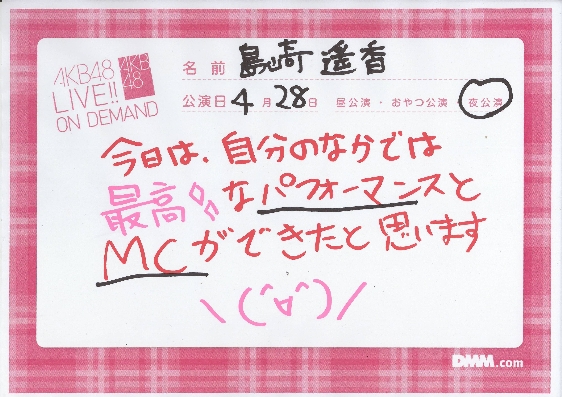 AKB48
LIVE!!
ON DEMAND
AKB
48
名前 島崎遥香
公演日 4月28日 昼公演・おやつ公演 夜公演
今日は、自分のなかでは
最高なパフォーマンスと
MCができたと思います
\(^∀^)/
DMM.com